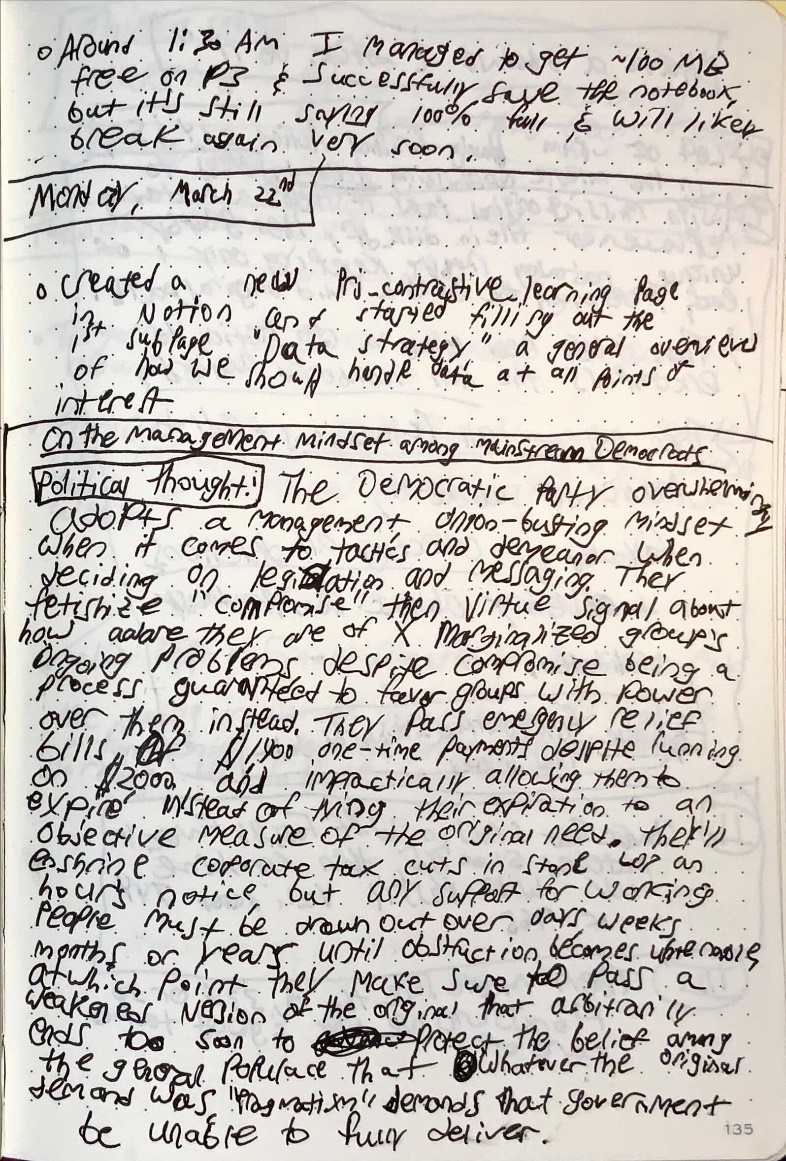 o Around 1:30 AM I managed to get ~100 MB
free on P3 & successfully save the notebook,
but it's still saying 100% full & will likely
break again very soon.
Monday, March 22nd
o Created a new Pri-contrastive-learning Page
in Notion and started filling out the
1st subpage "Data strategy" a general overview
of how we should handle data at all points of
interest
On the Management Mindset among mainstream Democrats
Political thought! The Democratic Party overwhelmingly
adopts a management, union-busting mindset
when it comes to tactics and demeanor when
deciding on legislation and messaging. They
fetishize "compromise" then virtue signal about
how aware they are of X Marginalized group's
ongoing problems despite compromise being a
process guaranteed to favor groups with power
over them instead. They pass emergency relief
bills of $1400 one-time payments despite running
on $2000 and impractically allowing them to
expire instead of tying their expiration to an
objective measure of the original need. They'll
enshrine corporate tax cuts in stone w/ an
hour's notice, but any support for working
people must be drawn out over days weeks
months or years until obstruction becomes untenable,
at which point they make sure to pass a
weakened version of the original that arbitrarily
ends too soon to protect the belief among
the general populace that whatever the original
demand was, "Pragmatism" demands that government
be unable to fully deliver.
135